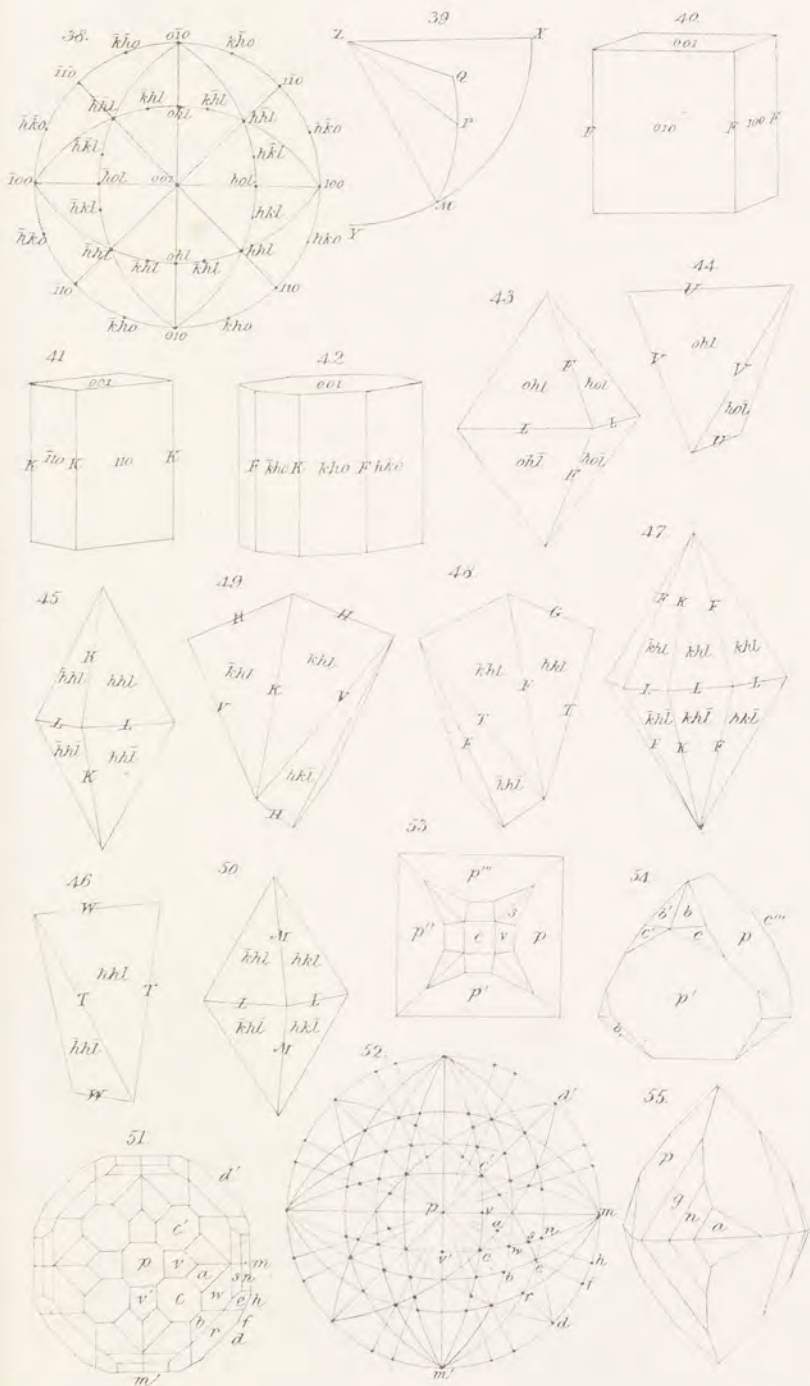 38.
k̄h̄o
oī0
kh̄o
īīo
iīo
h̄k̄o
hk̄o
h̄h̄l
k̄h̄l
oh̄l
kh̄l
hh̄l
h̄k̄l
hk̄l
ī00
h̄ol
001
hol
100
h̄kl
hkl
h̄ko
hko
h̄hl
k̄hl
ohl
khl
hhl
ī10
110
k̄ho
010
kho
39
Z
X
Q
P
M
Y
40.
001
F
010
F
100
F
41
001
K
ī10
K
110
K
42
001
F
k̄ho
K
kho
F
hko
43
F
ohl
hol
L
L
ohl̄
F
hol̄
44
V
ohl
V
V
hol̄
U
45
K
h̄hl
hhl
L
L
h̄hl̄
hhl̄
K
49
H
H
k̄hl
khl
V
K
V
hkl̄
H
48
G
k̄hl
hkl
F
T
T
F
k̄hl̄
47
F
K
F
k̄hl
khl
khl
L
L
L
k̄hl̄
khl̄
hkl̄
F
K
F
46
W
hhl
T
T
h̄hl̄
W
50
M
k̄hl
hkl
L
L
k̄hl̄
hkl̄
M
53
p'''
s
p''
c
v
p
p'
54.
b'
b
c'''
c'
c
p
p'
b,
51
d'
c'
p
v
m
a
s
n
v'
c
w
e
h
b
r
f
d
m'
52.
d'
c'
p
v
m
a
s
n
w
v'
c
e
h
b
f
r
d
m'
55.
p
g
n
a